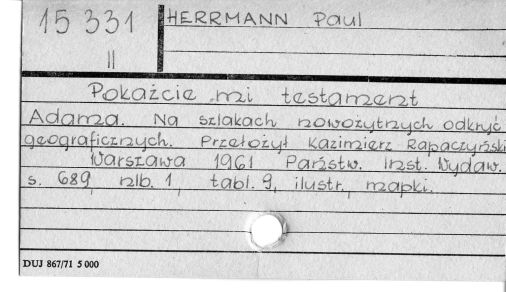 15 331
II
HERRMANN Paul
Pokażcie mi testament
Adama. Na szlakach nowożytnych odkryć
geograficznych. Przełożył Kazimierz Rapaczyński
Warszawa 1961 Państw. Inst. Wydaw.
s. 689, nlb. 1, tabl. 9, ilustr., mapki.
DUJ 867/71 5 000